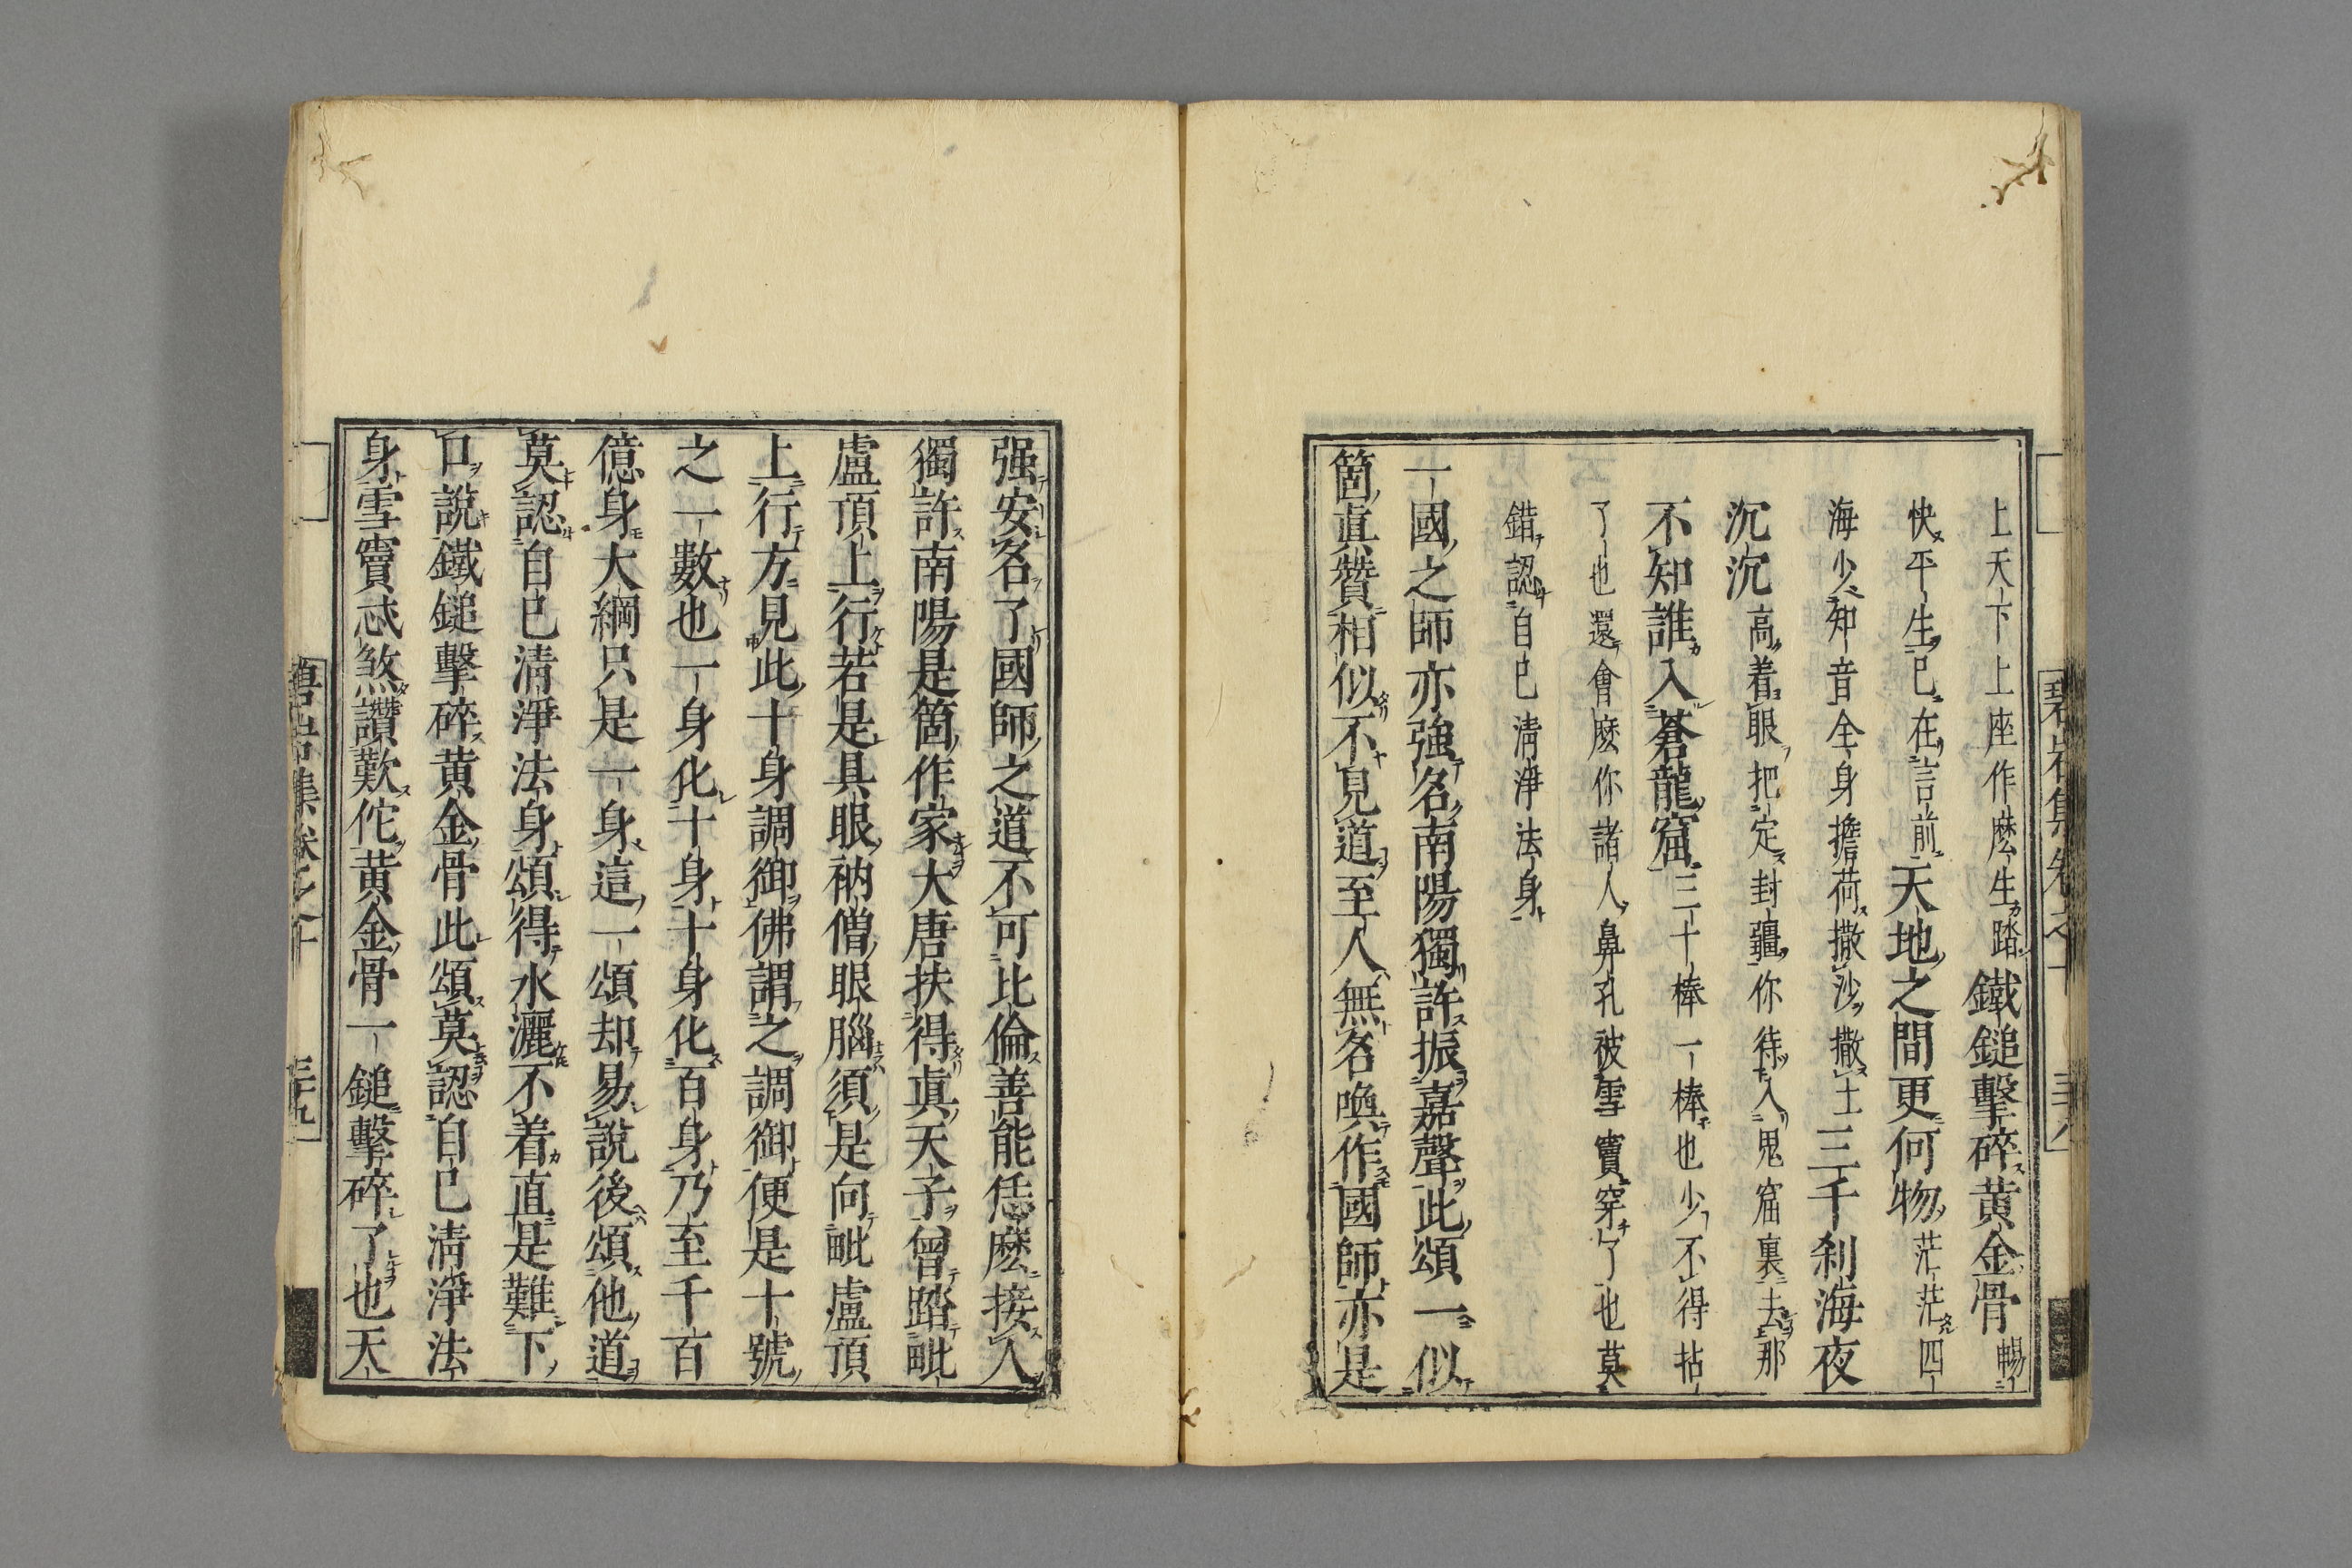 上天下上座作麽生踏鐵鎚擊碎黃金骨暢
快平生已在言前天地之間更何物茫茫四
海少知音全身擔荷撒沙撒土三千刹海夜
沉沉高着眼把定封疆你待入鬼窟裏去那
不知誰入蒼龍窟三十棒一棒也少不得拈
了也還會麽你諸人鼻孔被雪竇穿了也莫
錯認自己淸淨法身
一國之師亦強名南陽獨許振嘉聲此頌一似
箇眞贊相似不見道至人無名喚作國師亦是
碧岩集卷之十 三十八
强安名了國師之道不可比倫善能恁麽接人
獨許南陽是箇作家大唐扶得眞天子曾踏毗
盧頂上行若是具眼衲僧眼腦須是向毗盧頂
上行方見此十身調御佛謂之調御便是十號
之一數也一身化十身十身化百身乃至千百
億身大綱只是一身這一頌却易說後頌他道
莫認自己淸淨法身頌得水灑不着直是難下
口說鐵鎚擊碎黃金骨此頌莫認自己淸淨法
身雪竇忒煞讚歎佗黃金骨一鎚擊碎了也天
碧岩集卷之十 三十九